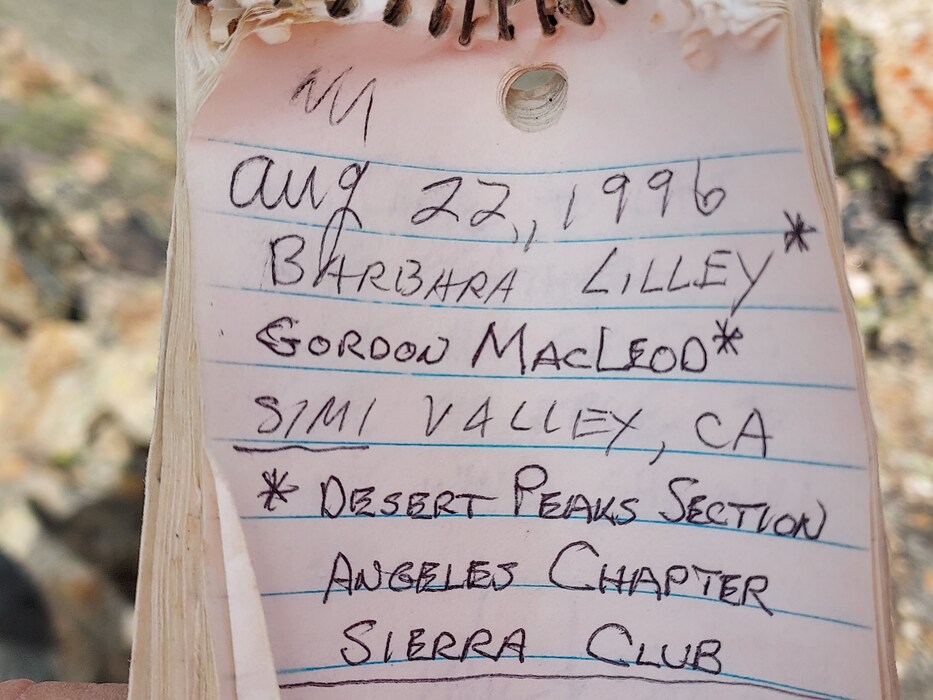 Aug 22,, 1996
BARBARA LILLEY*
GORDON MACLEOD*
SIMI VALLEY, CA
* DESERT PEAKS SECTION
ANGELES CHAPTER
SIERRA CLUB